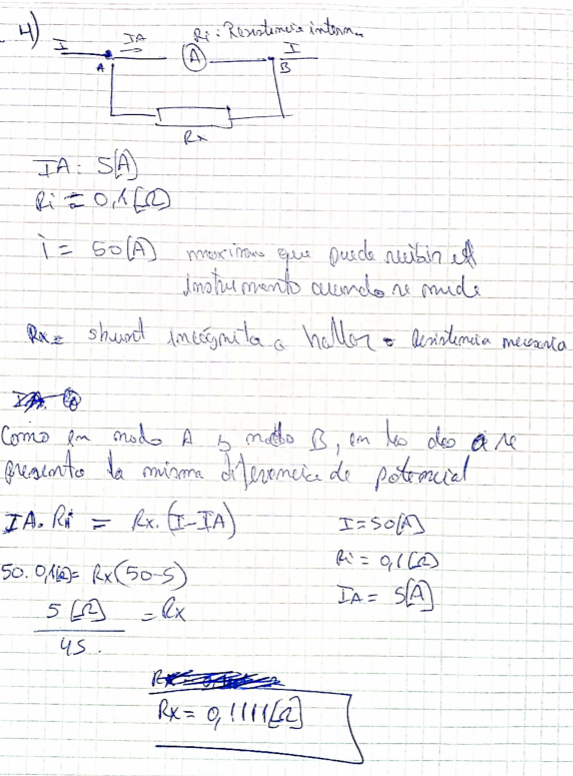 4)
I
IA
Ri: Resistencia intern
A
A
I
B
Rx
IA: 5[A]
Ri = 0,1[Ω]
i = 50[A] maximo que puede recibir el
instrumento cuando se mide
Rx = shunt incógnita a hallar = Resistencia necesaria
Como en nodo A y nodo B, en los dos se
presenta la misma diferencia de potencial
IA. Ri = Rx. (I-IA)
I=50[A]
Ri = 0,1[Ω]
50. 0,1[Ω]= Rx(50-5)
IA= 5[A]
5[Ω] = Rx
45.
Rx = 0,1111[Ω]